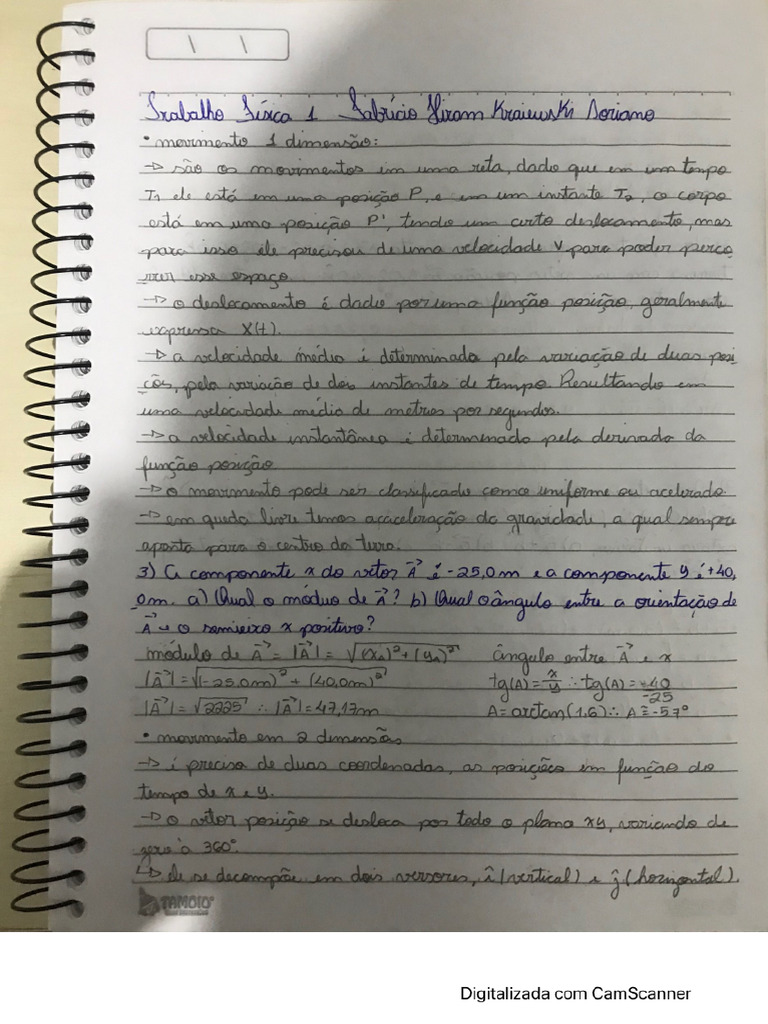 Trabalho Física 1 Fabrício Hiram Kraiewski Doriano
• movimento 1 dimensão:
→ são os movimentos em uma reta, dado que em um tempo
T₁ ele está em uma posição P, e em um instante T₂, o corpo
está em uma posição P', tendo um certo deslocamento, mas
para isso ele precisou de uma velocidade v para poder perco
rrer esse espaço
→ o deslocamento é dado por uma função posição, geralmente
expressa X(t).
→ a velocidade média é determinada pela variação de duas posi
ções, pela variação de dois instantes de tempo. Resultando em
uma velocidade média de metros por segundos.
→ a velocidade instantânea é determinado pela derivada da
função posição
→ o movimento pode ser classificado como uniforme ou acelerado
→ em queda livre temos a aceleração da gravidade, a qual sempre
aponta para o centro da terra.
3) A componente x do vetor A⃗ é -25,0m e a componente y é +40,
0m. a) Qual o móduo de A⃗? b) Qual o ângulo entre a orientação de
A⃗ e o semieixo x positivo?
módulo de A⃗ = |A⃗| = √(xₐ)²+(yₐ)² ângulo entre A⃗ e x
|A⃗| = √(-25,0m)² + (40,0m)² tg(A) = x/y ∴ tg(A) = -40/-25
|A⃗| = √2225 ∴ |A⃗| = 47,17m A = arctan(1,6) ∴ A ≅ -57°
• movimento em 2 dimensões
→ é preciso de duas coordenadas, as posições em função do
tempo de x e y.
→ o vetor posição se desloca por todo o plano xy, variando de
zero à 360°.
↳ ele se decompõe em dois versores, î (vertical) e ĵ (horizontal).
TAMOIO
Digitalizada com CamScanner